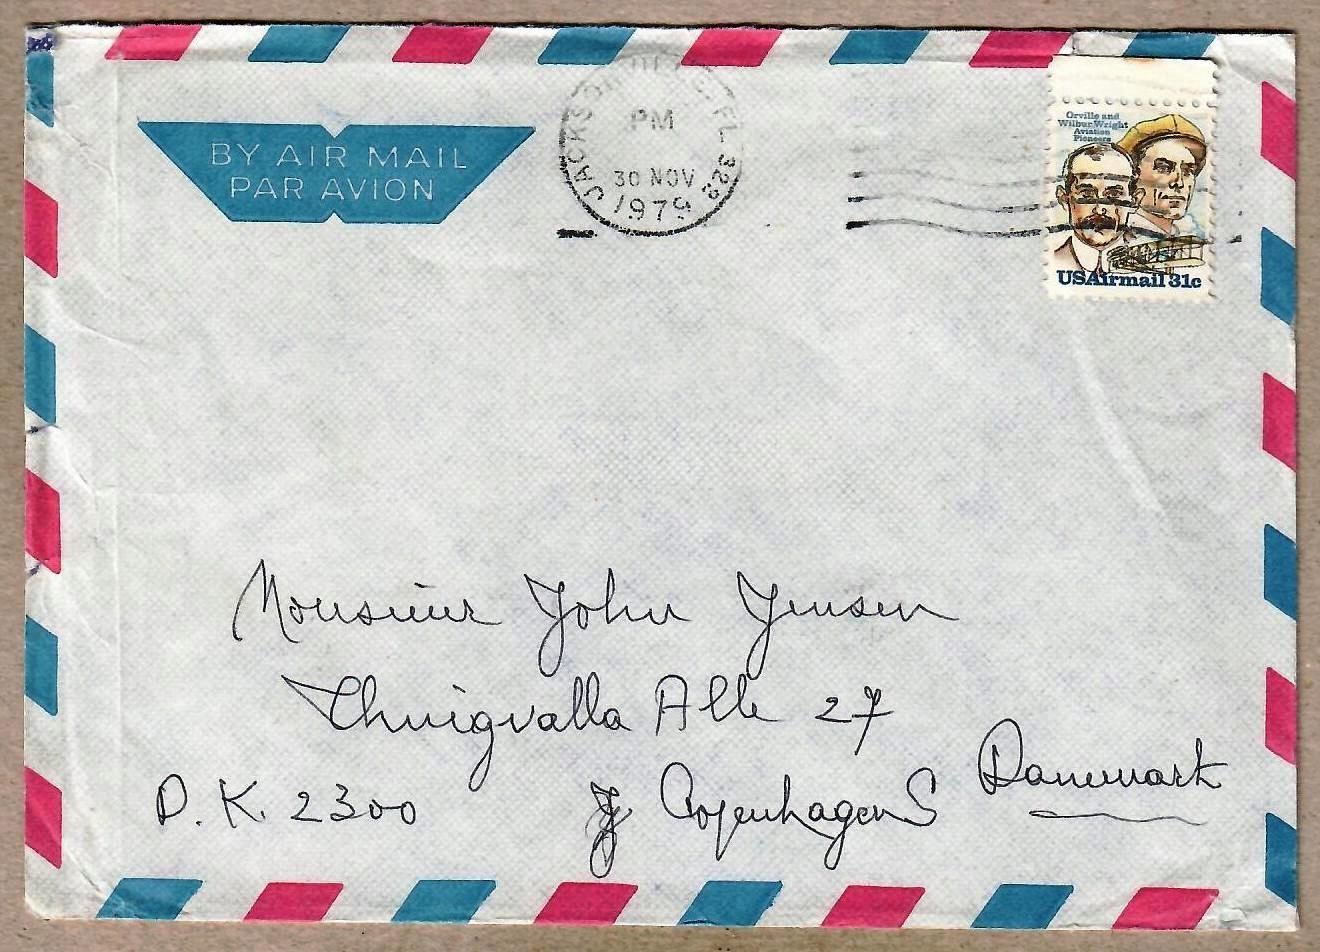 BY AIR MAIL
PAR AVION
JACKSONVILLE, FL 322
PM
30 NOV
1979
Orville and
Wilbur Wright
Aviation
Pioneers
USAirmail 31c
Monsieur John Jensen
Thingvalla Alle 27
D.K. 2300 Copenhagen S Danemark